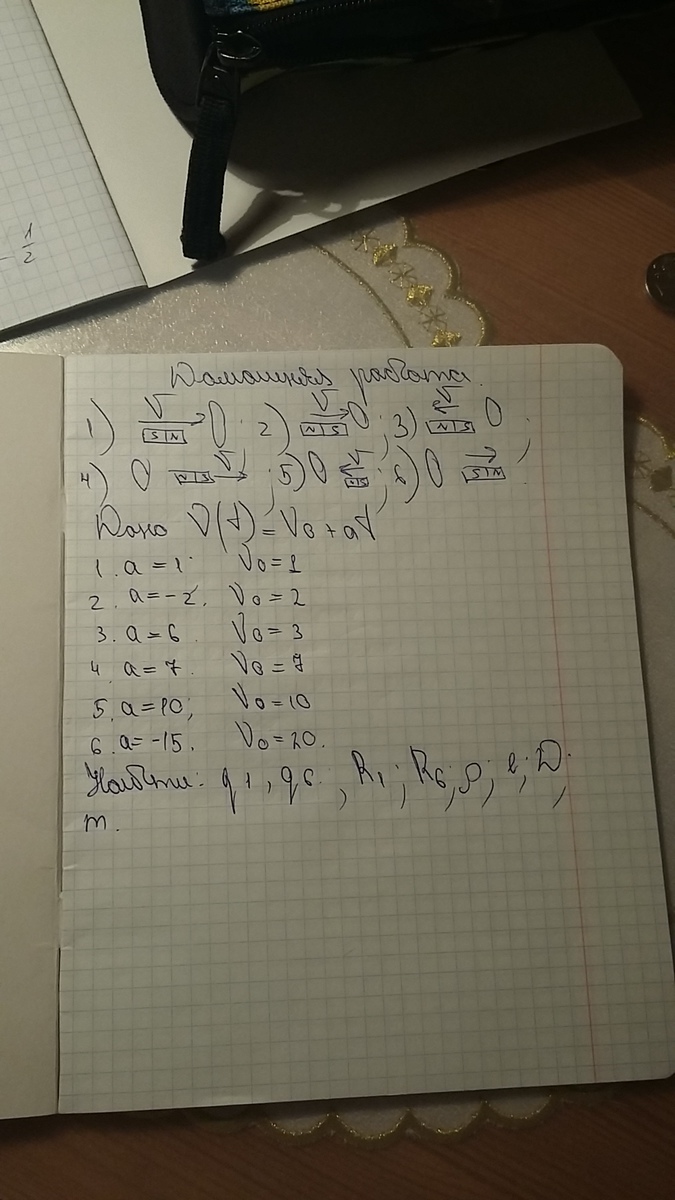 - 1/2
Домашняя работа.
1) V S N 0; 2) V N S 0; 3) V N S 0;
4) 0 N S V; 5) 0 V N S; 6) 0 S N.
Дано V(t) = V0 + at
1. a = 1 V0 = 1
2. a = -2. V0 = 2
3. a = 6. V0 = 3
4. a = 7. V0 = 7
5. a = 10; V0 = 10
6. a = -15. V0 = 20.
Найти: q1, q6; R1; R6; ρ; l; D;
m.